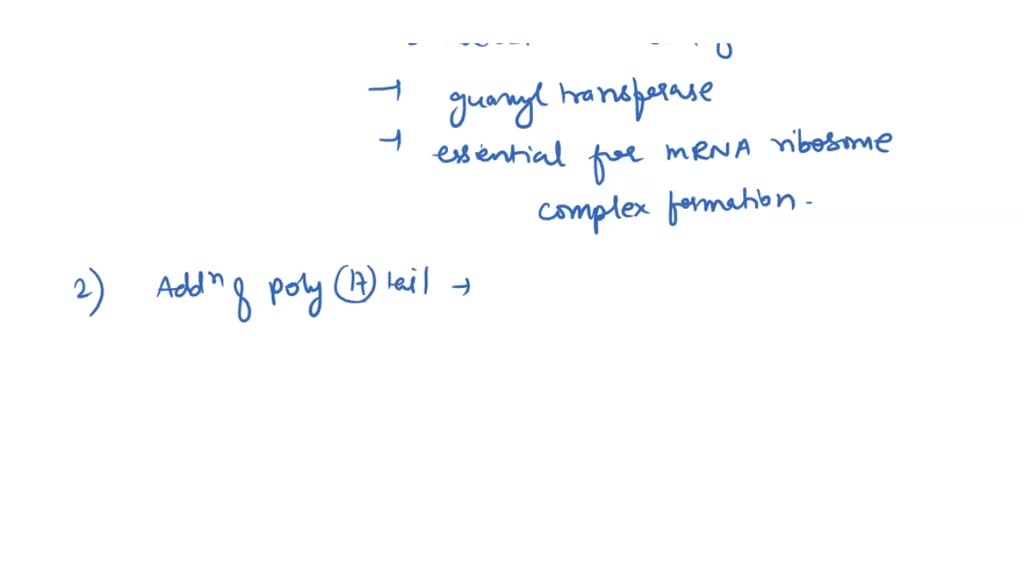 → guanyl transferase
→ essential for mRNA ribosome
complex formation.
2) Addⁿ of poly (A) tail →